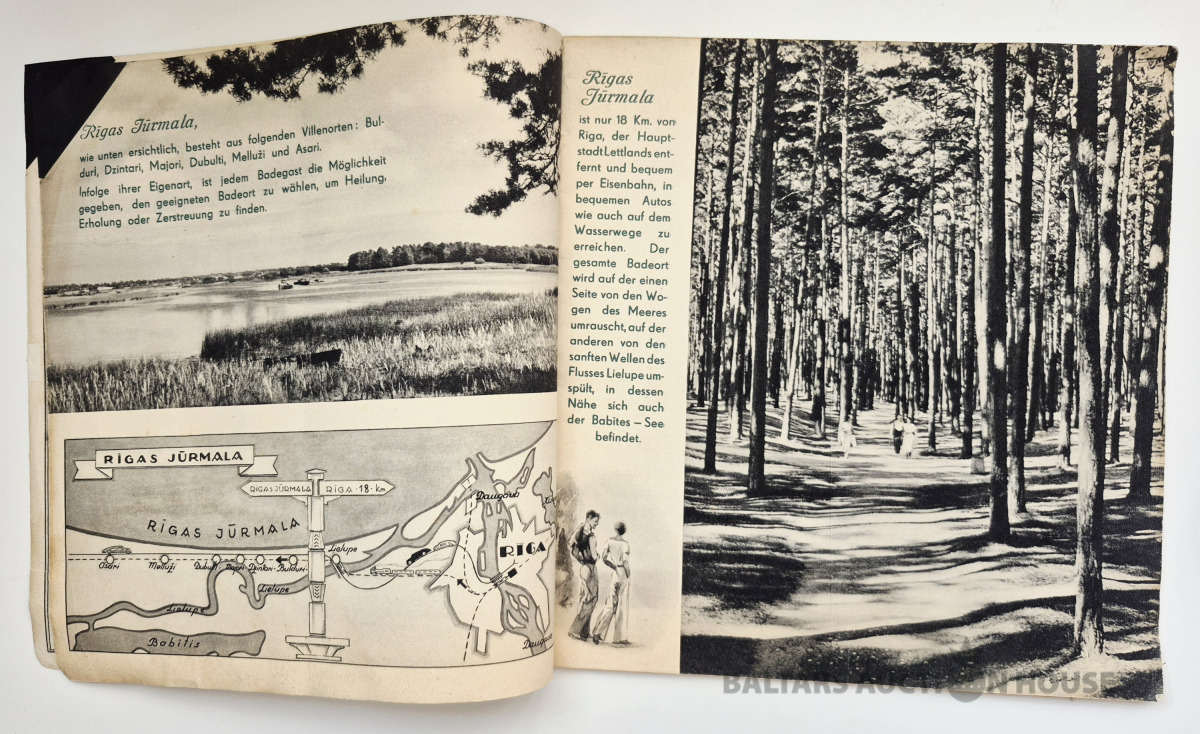 Rīgas Jūrmala,
wie unten ersichtlich, besteht aus folgenden Villenorten: Bul-
durl, Dzintari, Majori, Dubulti, Melluži und Asari.
Infolge ihrer Eigenart, ist jedem Badegast die Möglichkeit
gegeben, den geeigneten Badeort zu wählen, um Heilung,
Erholung oder Zerstreuung zu finden.
RĪGAS JŪRMALA
RĪGAS JŪRMALA
RĪGA · 18 · km
RĪGAS JŪRMALA
Daugava
RĪGA
Lielupe
Asari
Melluži
Dubulti
Majori
Dzintari
Bulduri
Lielupe
Lielupe
Babītis
Rīgas
Jūrmala
ist nur 18 Km. von
Riga, der Haupt-
stadt Lettlands ent-
fernt und bequem
per Eisenbahn, in
bequemen Autos
wie auch auf dem
Wasserwege zu
erreichen. Der
gesamte Badeort
wird auf der einen
Seite von den Wo-
gen des Meeres
umrauscht, auf der
anderen von den
sanften Wellen des
Flusses Lielupe um-
spült, in dessen
Nähe sich auch
der Babites – See
befindet.
BALTARS AUCTION HOUSE